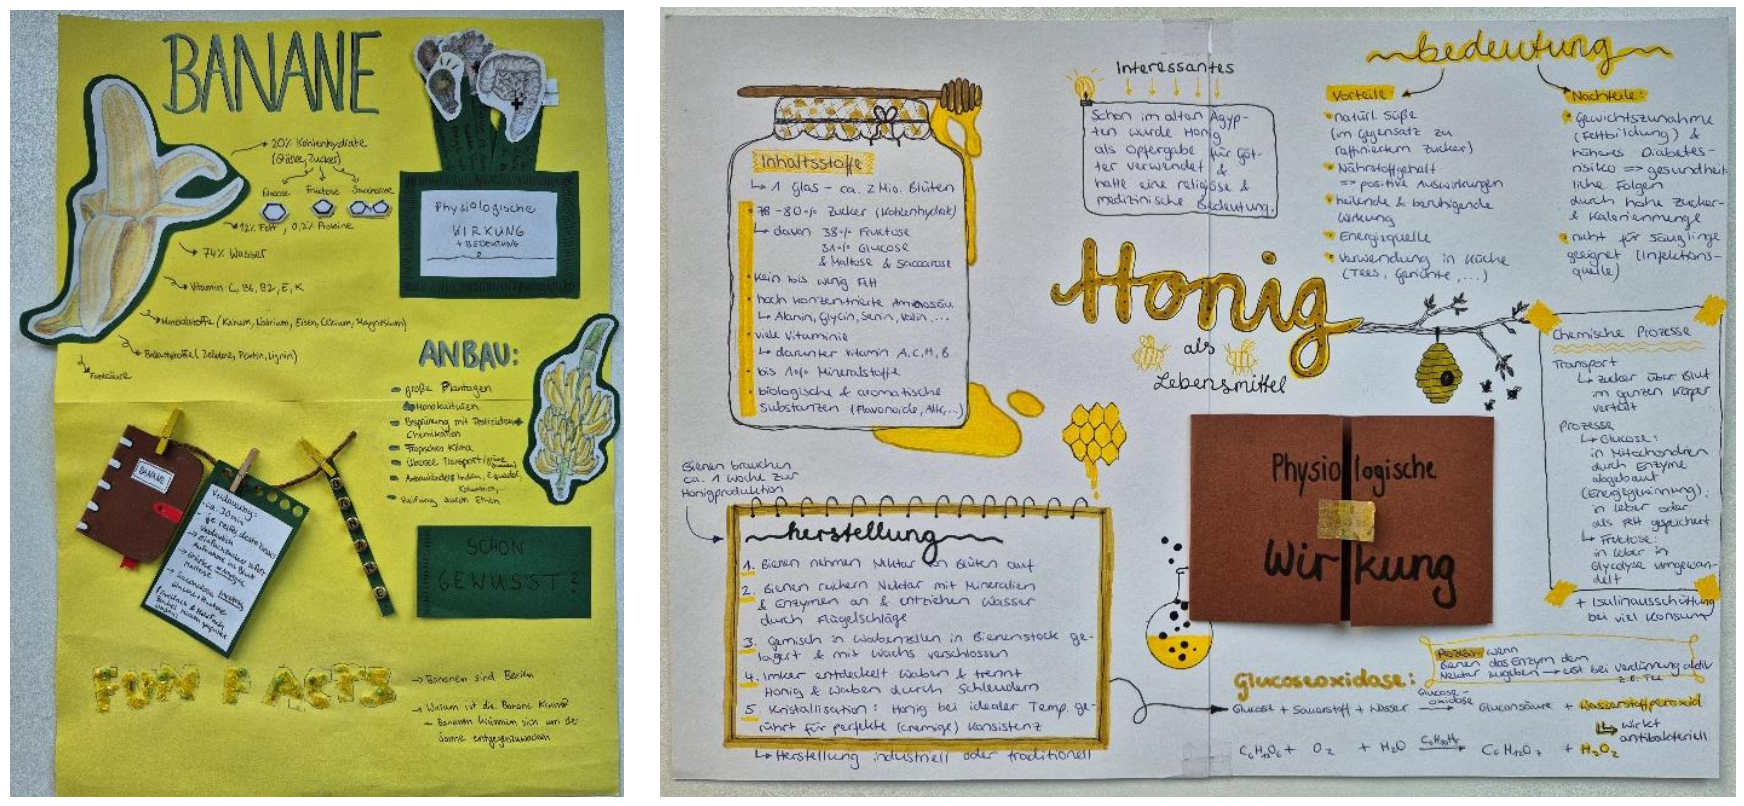 BANANE
20% Kohlenhydrate
(Stärke, Zucker)
Glucose Fructose Saccharose
Fett, 0,2% Proteine
74% Wasser
Vitamin C, B6, B2, E, K
Mineralstoffe (Kalium, Natrium, Eisen, Calcium, Magnesium)
Ballaststoffe (Zellulose, Pektin, Lignin)
Physiologische
WIRKUNG
+ BEDEUTUNG
ANBAU:
große Plantagen
Monokulturen
Besprühung mit
Chemikalien
Tropisches Klima
Transport
Indien, Ecuador,
Reifung durch Ethen
BANANE
Verdauung:
ca. 30 min
SCHON
GEWUSST?
FUN FACTS
→ Bananen sind Beeren
→ Warum ist die Banane krumm?
- Bananen krümmen sich um der
Sonne entgegenzuwachsen
Inhaltsstoffe
↳ 1 Glas - ca. 2 Mio. Blüten
78-80% Zucker (Kohlenhydrat)
↳ davon 38% Fructose
31% Glucose
& Maltose & Saccarose
kein bis wenig Fett
hoch konzentrierte Aminosäu
↳ Alanin, Glycin, Serin, Valin,...
viele Vitaminie
↳ darunter Vitamin A, C, H, B
bis 1% Mineralstoffe
biologische & aromatische
Substanzen (Flavonoide, Alk,...)
Bienen brauchen
ca. 1 Woche zur
Honigproduktion
herstellung
1. Bienen nehmen Nektar an Blüten auf
2. Bienen reichern Nektar mit Mineralien
& Enzymen an & entziehen Wasser
durch Flügelschläge
3. Gemisch in Wabenzellen in Bienenstock ge-
lagert & mit Wachs verschlossen
4. Imker entdeckelt Waben & trennt
Honig & Waben durch Schleudern
5. Kristallisation: Honig bei idealer Temp. ge-
rührt für perfekte (cremige) Konsistenz
↳ Herstellung industriell oder traditionell
Interessantes
Schon im alten Ägyp-
ten wurde Honig
als Opfergabe für Göt-
ter verwendet &
hatte eine religiöse &
medizinische Bedeutung.
Honig
als
Lebensmittel
bedeutung
Vorteile:
natürl. Süße
(im Gegensatz zu
raffiniertem Zucker)
Nährstoffgehalt
=> positive Auswirkungen
heilende & beruhigende
Wirkung
Energiequelle
Verwendung in Küche
(Tees, Gerichte,...)
Nachteile:
Gewichtszunahme
(Fettbildung) &
höheres Diabetes-
risiko => gesundheit
liche Folgen
durch hohe Zucker-
& Kalorienmenge
nicht für Säuglinge
geeignet (Infektions-
quelle)
Chemische Prozesse
Transport
↳ Zucker über Blut
im ganzen Körper
verteilt
Prozesse
↳ Glucose:
in Mitochondrien
durch Enzyme
abgebaut
(Energiegewinnung),
in Leber oder
als Fett gespeichert
↳ Fructose:
in Leber in
Glycolyse umgewan-
delt
+ Isulinausschüttung
bei viel Konsum
Physiologische
Wirkung
Prozess wenn
Bienen das Enzym dem
Nektar zugeben → erst bei Verdünnung aktiv
z.B. Tee
Glucoseoxidase:
Glucose + Sauerstoff + Wasser Glucose-oxidase Gluconsäure + Wasserstoffperoxid
↳ wirkt
antibakteriell
C₆H₁₂O₆ + O₂ + H₂O C₆H₁₂O₇ + H₂O₂